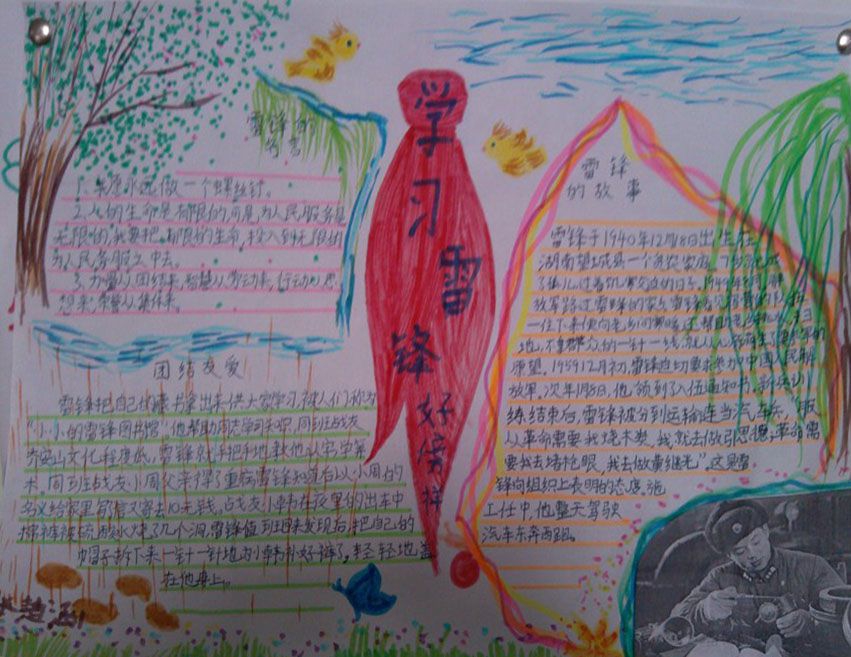 学习雷锋好榜样
雷锋的
名言
1.我愿永远做一个螺丝钉。
2.人的生命是有限的,可是,为人民服务是
无限的,我要把有限的生命,投入到无限的
为人民服务之中去。
3.力量从团结来,智慧从劳动来,行动从思
想来,荣誉从集体来。
团结友爱
雷锋把自己的藏书拿出来供大家学习,被人们称为
“小小的雷锋图书馆”他帮助同志学习知识,同班战友
乔安山文化程度低,雷锋就手把手地教他认字,学算
术,同班战友小周父亲得了重病雷锋知道后以小周的
名义给家里写信又寄去10元钱。战友小韩在夜里的出车中
棉裤被硫酸水烧了几个洞,雷锋值班回来发现后,把自己的
帽子拆下来一针一针地为小韩补好裤子,轻轻地盖
在他身上。
雷锋
的故事
雷锋于1940年12月18日出生在
湖南望城县一个贫农家庭,
放军路过雷锋的家乡
愿望。1959年12月初,雷锋迫切要求参加中国人民解
放军。次年1月8日,他领到入伍通知书,新兵训
练结束后,雷锋被分到运输连当汽车兵,“服
从革命需要我烧木炭,我就去做张思德,革命需
要我去堵枪眼,我去做黄继光”,这是雷
锋向组织上表明的态度,施
工任中,他整天驾驶
汽车东奔西跑。